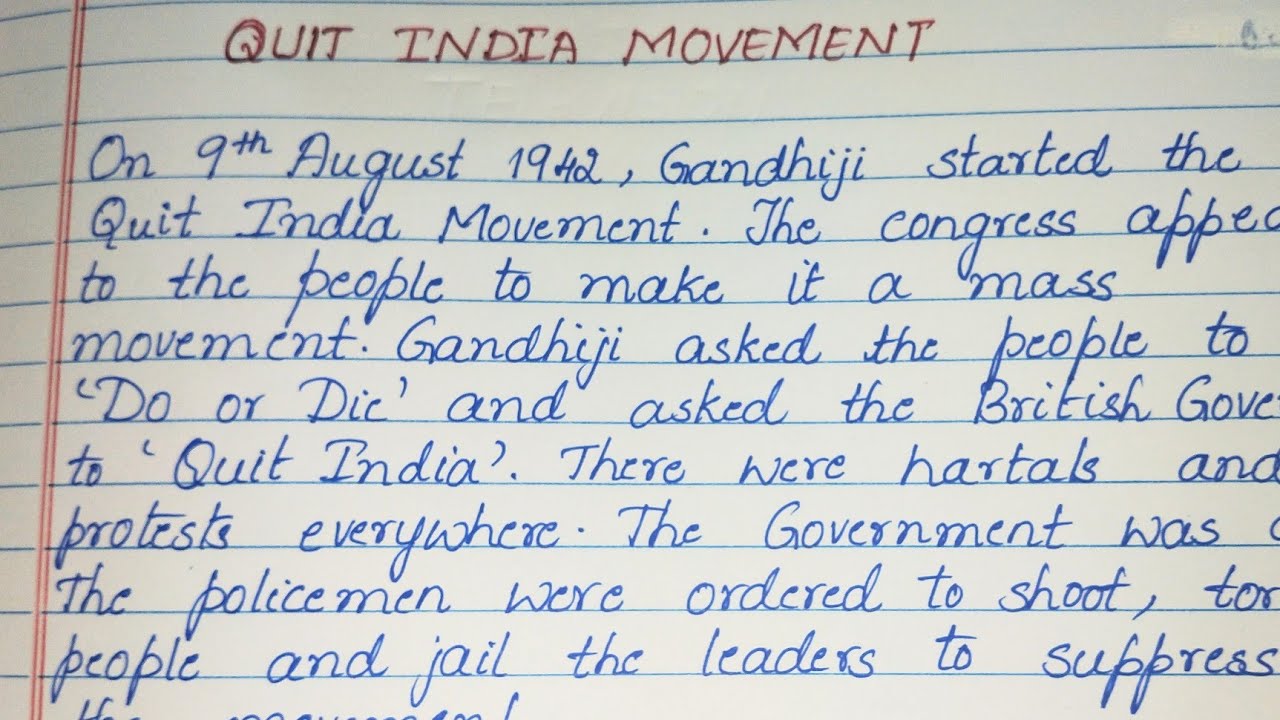 QUIT INDIA MOVEMENT
On 9th August 1942, Gandhiji started the
Quit India Movement. The congress appea
to the people to make it a mass
movement. Gandhiji asked the people to
'Do or Die' and asked the British Gove
to 'Quit India'. There were hartals and
protests everywhere. The Government was
The policemen were ordered to shoot, tor
people and jail the leaders to suppress
the movement